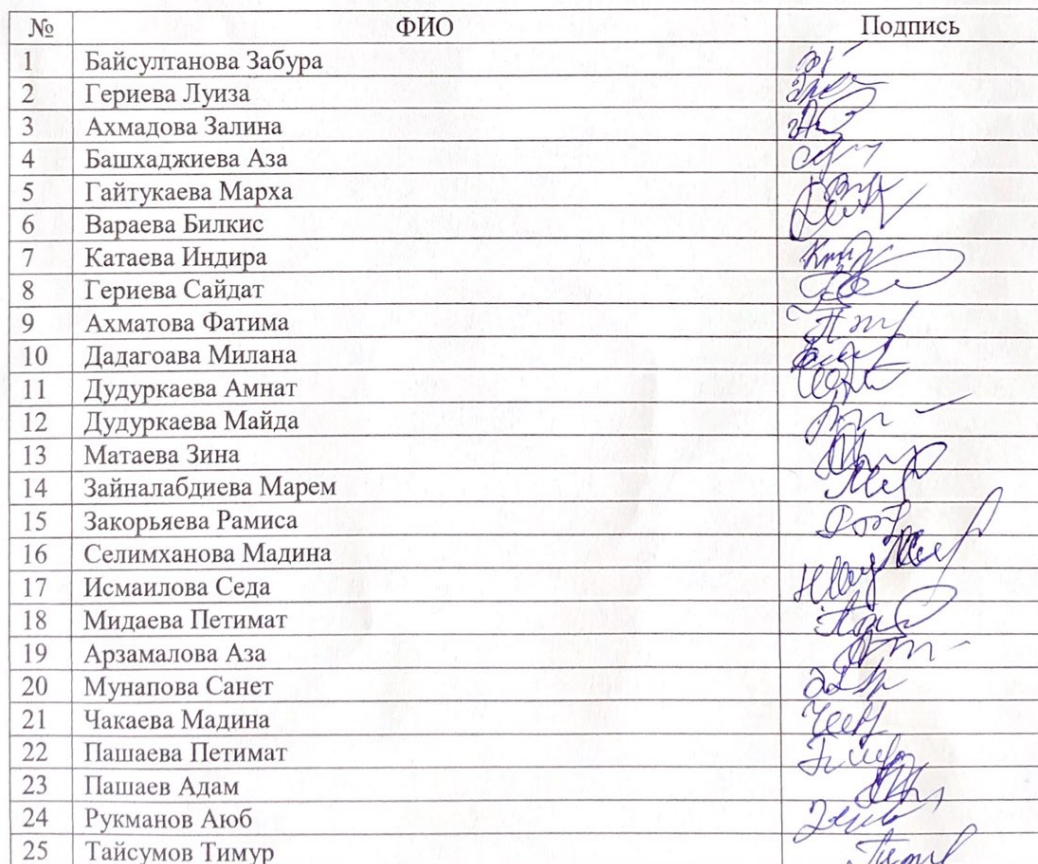 № ФИО Подпись
1 Байсултанова Забура
2 Гериева Луиза
3 Ахмадова Залина
4 Башхаджиева Аза
5 Гайтукаева Марха
6 Вараева Билкис
7 Катаева Индира
8 Гериева Сайдат
9 Ахматова Фатима
10 Дадагоава Милана
11 Дудуркаева Амнат
12 Дудуркаева Майда
13 Матаева Зина
14 Зайналабдиева Марем
15 Закорьяева Рамиса
16 Селимханова Мадина
17 Исмаилова Седа
18 Мидаева Петимат
19 Арзамалова Аза
20 Мунапова Санет
21 Чакаева Мадина
22 Пашаева Петимат
23 Пашаев Адам
24 Рукманов Аюб
25 Тайсумов Тимур